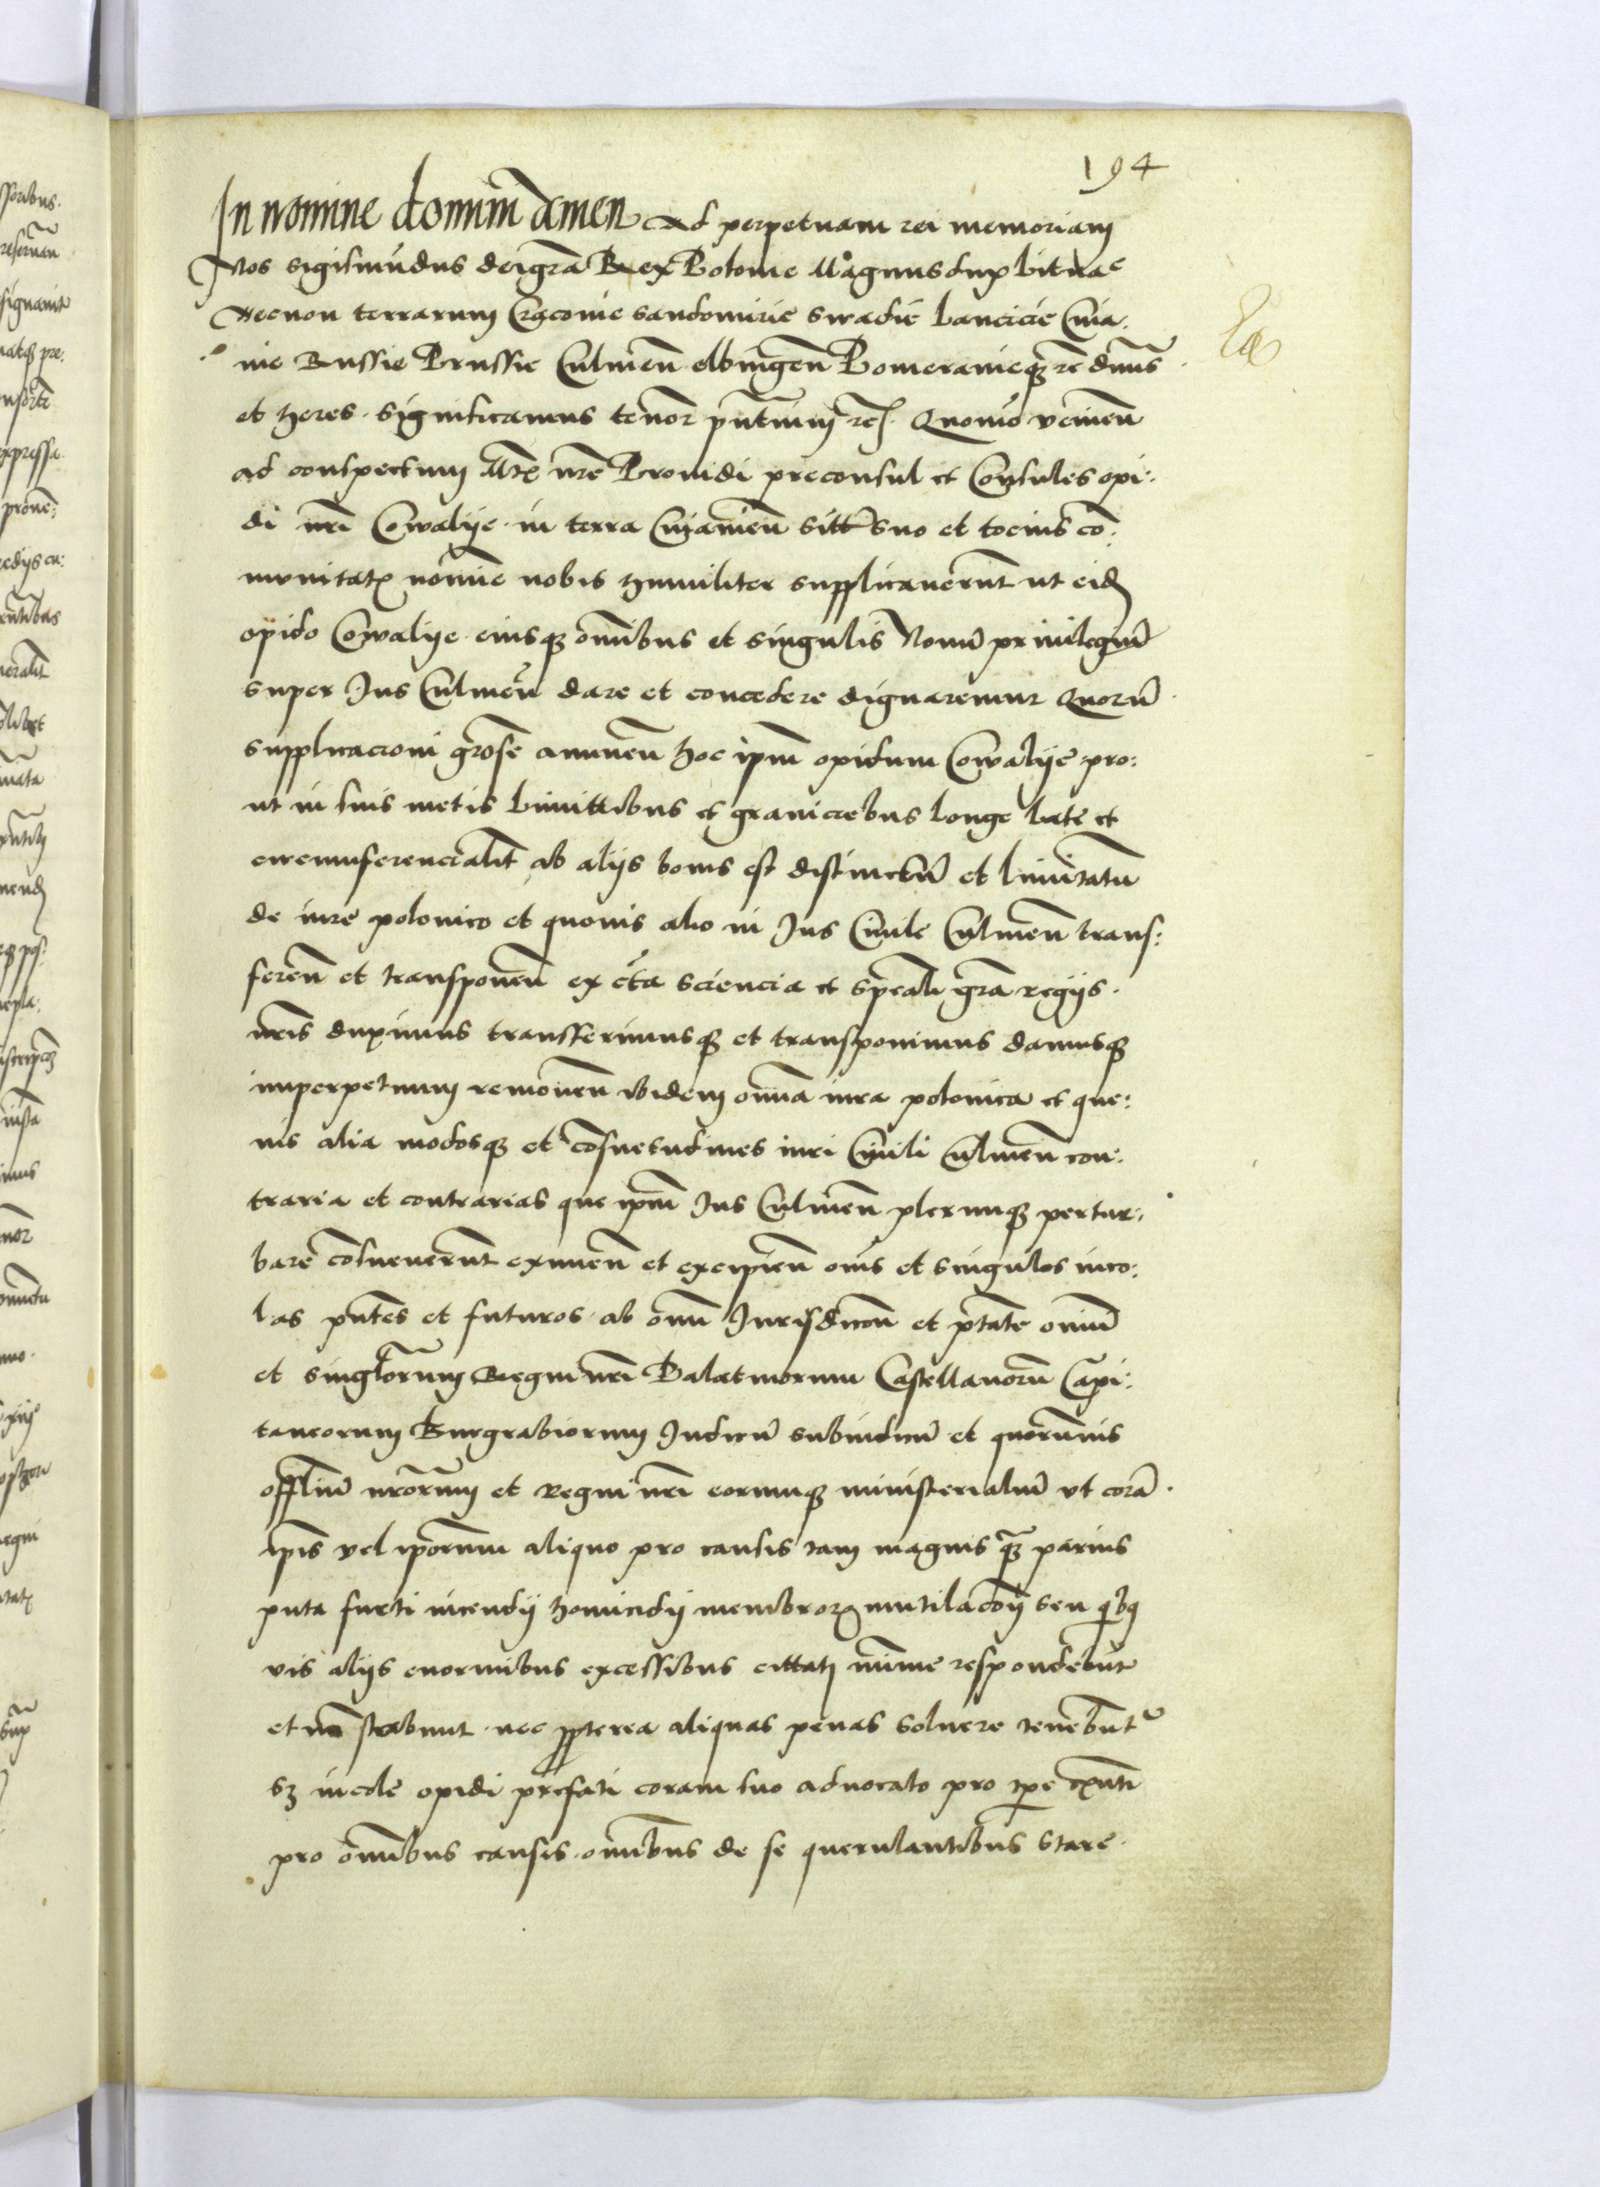 194
In nomine domini Amen Ad perpetuam rei memoriam
Nos sigismũdus deigrã Rex Polonie Magnus dux Lituae
Necnon terrarum Cracovie sandomirie siradie Lancicie Cuia.
vie Russie Prussie Culmeñ elbingeñ Pomeranieqʒ rẽ dñus
et heres. significamus tenor̃ pñtium rẽ. Quomo venieñ
ad conspectum Mtẽ nrẽ Providi preconsul et Consules opi:
di nri Cowalÿe in terra Cuiavieñ sitt suo et tocius cõ:
munitatꝭ nomĩe nobis humiliter supplicaverunt ut eidẽ
opido Cowalÿe eiusqʒ omĩbus et singulis Novũ privilegiũ
super Ius Culmeñ dare et concedere dignaremur Quorũ
supplicacioni grose annueñ hoc ipm̃ opidum Cowalÿe pro:
ut in suis metis Limittibus et graniciebus longe late et
circumferencialit̃ ab alÿs bonis est distinctũ et limitatũ
de iure polonico et quovis alio in Ius Civile Culmeñ trans:
fereñ et transponeñ ex cta sciencia et speali grã regÿs.
nris duximus transferimusqʒ et transponimus damusqʒ
imperpetuum removeñ ibidem omnia iura polonica et que:
vis alia modosqʒ et cõsuetudines iuri Civili Culmeñ con:
traria et contrarias que ipm̃ Ius Culmeñ plerumqʒ pertur:
bare cõsueverunt eximeñ et excipieñ om̃s et singulos inco:
las pñtes et futuros ab omni Iurisdicõn et ptãte omniũ
et singlorum Regni nri Palatinorum Castellanorũ Capi:
taneorum Burgrabiorum Iudicũ subiudicũ et quorumvis
offliũ nrorum et Regni nri eorumqʒ ministerialiũ ut corã.
ipis vel iporum aliquo pro causis tam magnis qʒ parvis
puta furti incendÿ homicidÿ membrorꝝ mutilacõnÿ seu qibꝯ
vis alÿs enormibus excessibus cittatj minime respondebũt
et nõ stabunt nec ppterea aliquas penas solvere tenebunt᷑
sʒ incole opidi prefati coram suo advocato pro tpe exñti
pro omĩbus causis omĩbus de se querulantibus stare